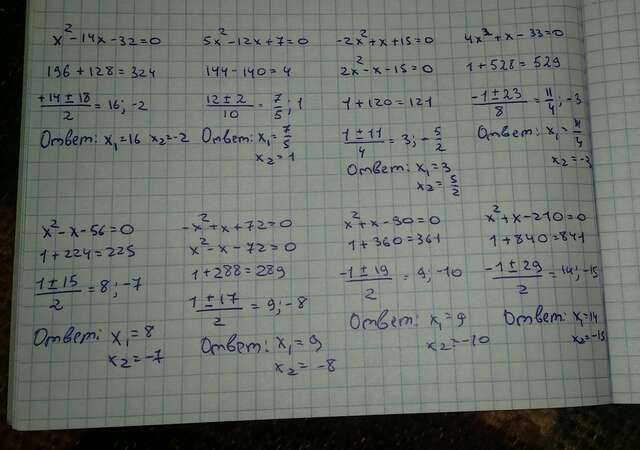 x² - 14x - 32 = 0
196 + 128 = 324
+14 ± 18 / 2 = 16; -2
Ответ: x₁ = 16 x₂ = -2
5x² - 12x + 7 = 0
144 - 140 = 4
12 ± 2 / 10 = 7/5; 1
Ответ: x₁ = 7/5
x₂ = 1
-2x² + x + 15 = 0
2x² - x - 15 = 0
1 + 120 = 121
1 ± 11 / 4 = 3; -5/2
Ответ: x₁ = 3
x₂ = 5/2
4x² + x - 33 = 0
1 + 528 = 529
-1 ± 23 / 8 = 11/4; -3
Ответ: x₁ = 11/4
x₂ = -3
x² - x - 56 = 0
1 + 224 = 225
1 ± 15 / 2 = 8; -7
Ответ: x₁ = 8
x₂ = -7
-x² + x + 72 = 0
x² - x - 72 = 0
1 + 288 = 289
1 ± 17 / 2 = 9; -8
Ответ: x₁ = 9
x₂ = -8
x² + x - 90 = 0
1 + 360 = 361
-1 ± 19 / 2 = 9; -10
Ответ: x₁ = 9
x₂ = -10
x² + x - 210 = 0
1 + 840 = 841
-1 ± 29 / 2 = 14; -15
Ответ: x₁ = 14
x₂ = -15